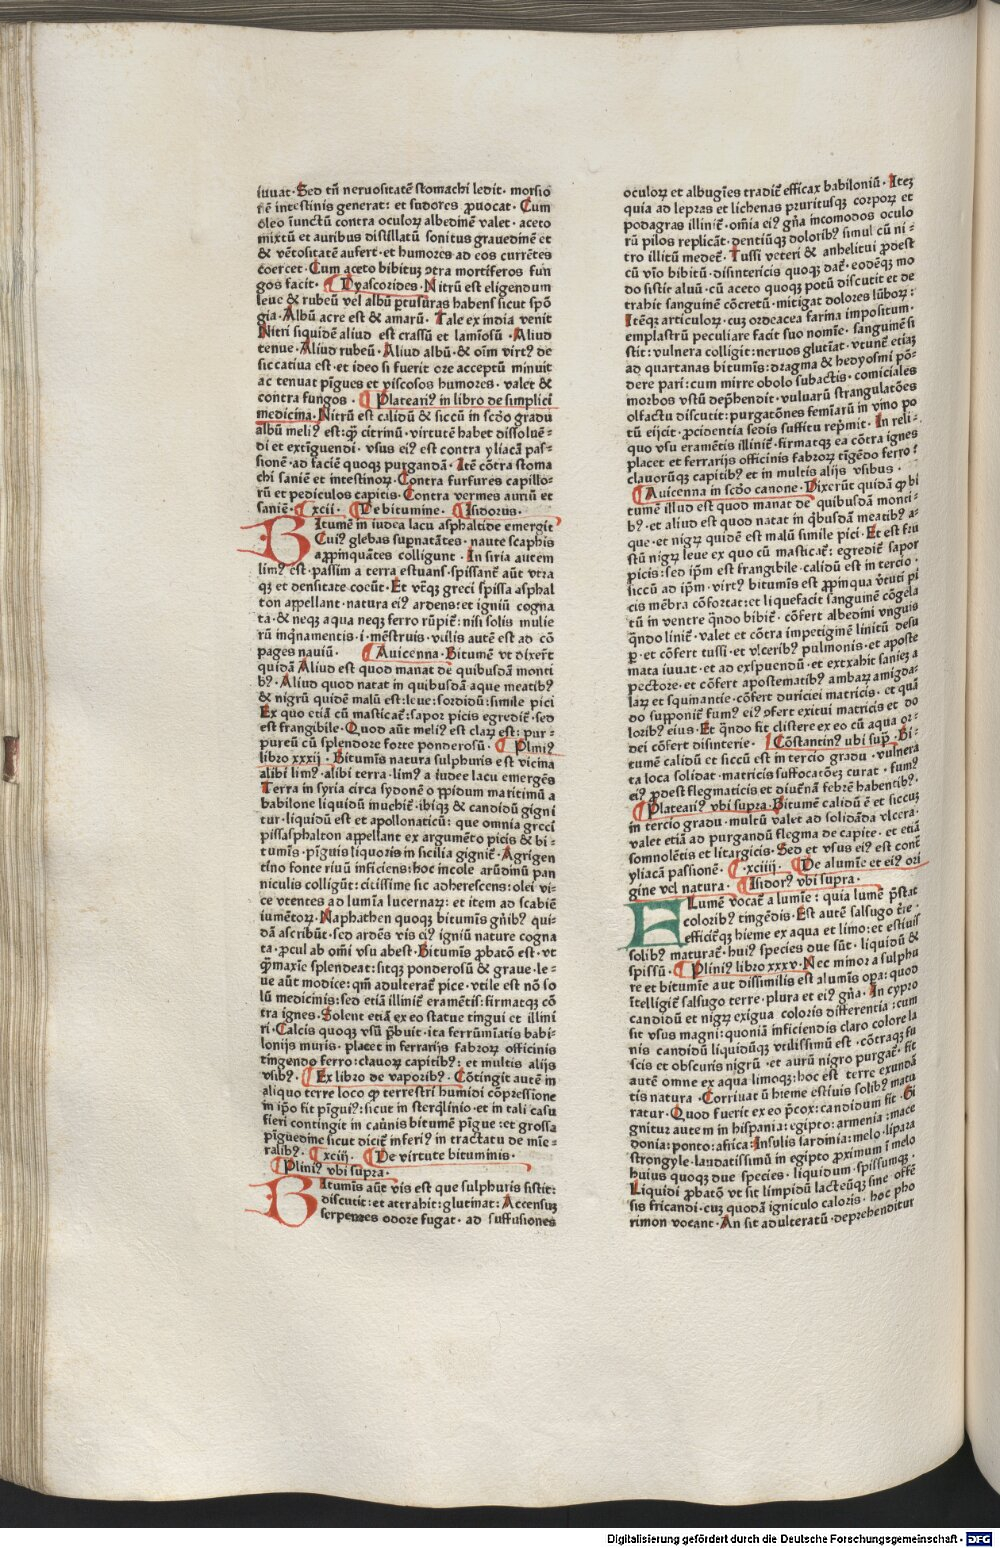 iuuat·Sed tñ neruositatē stomachi ledit· morsio
nē intestinis generat: et sudores ꝓuocat· Cum
oleo iunctū contra oculoꝝ albedinē valet· aceto
mixtū et auribus distillatū sonitus grauedinē et
& vētositatē aufert· et humores ad eos currētes
coercet· Cum aceto bibituꝫ ↄtra mortiferos fun
gos facit· ¶ Dyascorides· Nitrū est eligendum
leue & rubeū vel albū ꝑtusuras habens sicut spō
gia· Albū acre est & amarū· Tale ex india venit
Nitri siquidē aliud est crassū et lamīosū ·Aliud
tenue·Aliud rubeū·Aliud albū·& oīm virtꝰ de
siccatiua est·et ideo si fuerit ore acceptū minuit
ac tenuat pīgues et viscosos humores· valet &
contra fungos· ¶ Platearꝰ in libro de simplici
medicina·Nitrū est calidū & siccū in scd̄o gradu
albū meliꝰ est:ꝙ citrinū·virtutē habet dissoluē⸗
di et extīguendi· vsus eiꝰ est contra yliacā pas⸗
sionē·ad faciē quoqꝫ purgandā· Itē cōtra stoma
chi saniē et intestinoꝝ·Contra furfures capillo⸗
rū et pediculos capitis·Contra vermes auriū et
saniē·¶ xcii· ¶ De bitumine· ¶ Isidorus·
BItumē in iudea lacu asphaltide emergit
Cuiꝰ glebas supnatātes·naute scaphis
appinquātes colligunt·In siria autem
limꝰ est·passim a terra estuans·spissant̄ aūt vtra
qꝫ et densitate coeūt·Et vt̄qꝫ greci spissa asphal
ton appellant·natura eiꝰ ardens:et igniū cogna
ta·& neqꝫ aqua neqꝫ ferro rūpit̄: nisi solis mulie
rū inq̄namentis·i·mēstruis·vtilis autē est ad cō
pages nauiū· ¶ Auicenna·Bitumē vt dixer̄t
quidā Aliud est quod manat de quibusdā monti
bꝰ·Aliud quod natat in quibusdā aque meatibꝰ
& nigrū quidē malū est:leue:sordidū:simile pici
Ex quo etiā cū masticat̄:sapor picis egredit̄·sed
est frangibile·Quod aūt meliꝰ est claꝝ est: pur⸗
pureū cū splendore forte ponderosū· ¶ Pliniꝰ
libro xxxij·Bitumīs natura sulphuris est vicina
alibi limꝰ·alibi terra·limꝰ a iudee lacu emergēs
Terra in syria circa sydonē oppidum maritimū a
babilone liquidū inuehit̄·ibiqꝫ & candidū gigni
tur·liquidū est et apollonaticū: que omnia greci
pissasphalton appellant ex argumēto picis & bi⸗
tumīs·pīguis liquoris in sicilia gignit̄·Agrigen
tino fonte riuū inficiens:hoc incole arūdinū pan
niculis colligūt:citissime sic adherescens:olei vi⸗
ce vtentes ad lumīa lucernaꝝ: et item ad scabiē
iumētoꝝ·Naphathen quoqꝫ bitumīs gn̄ibꝰ qui⸗
dā ascribūt·sed ardēs vis eiꝰ igniū nature cogna
ta·ꝓcul ab om̄i vsu abest·Bitumīs ꝓbatō est·vt
q̄maxīe splendeat:sitqꝫ ponderosū & graue·le⸗
ue aūt modice: qm̄ adulterat̄ pice·vtile est nō so
lū medicinis:sed etiā illinit̄ eramētis:firmatqꝫ cō
tra ignes·Solent etiā ex eo statue tingui et illini
ri·Calcis quoqꝫ vsū p̄buit·ita ferrūmīatis babi⸗
lonijs muris·placet in ferrarijs fabroꝝ officinis
tingendo ferro:clauoꝝ capitibꝰ: et multis alijs
vsibꝰ· ¶ Ex libro de vaporibꝰ·Cōtingit autē in
aliquo terre loco ꝙ terrestri humidi cōpressione
in ip̄o fit pīguiꝰ:sicut in sterq̄līnio·et in tali casu
fieri contingit in cau̇nis bitumē pīgue:et grossa
pīguedine sicut dicit̄ inferiꝰ in tractatu de mīe⸗
ralibꝰ· ¶ xciij· ¶ De virtute bituminis·
¶ Pliniꝰ vbi supra·
BItumīs aūt vis est que sulphuris sistit:
discutit:et attrahit:glutinat: Accensuꝫ
serpentes odore fugat· ad suffusiones
oculoꝝ et albugīes tradit̄ efficax babiloniū· Iteꝫ
quia ad lepras et lichenas pruritusqꝫ corpoꝝ et
podagras illinit̄·om̄ia eiꝰ gn̄a incomodos oculo
rū pilos replicāt·dentiūqꝫ doloribꝰ simul cū ni⸗
tro illitū medet̄·Tussi veteri & anhelitui ꝓdest
cū vīo bibitū·disintericis quoqꝫ dat̄·eodēqꝫ mo
do sistit aluū·cū aceto quoqꝫ potū discutit et de
trahit sanguinē cōcretū·mitigat dolores lūboꝝ:
Itēqꝫ articuloꝝ·cuꝫ ordeacea farina impositum·
emplastrū peculiare facit suo nomīe·sanguinē si
stit:vulnera colligit:neruos glutīat·vtunt̄ etiaꝫ
ad quartanas bitumīs:dragma & hedyosmi pō⸗
dere pari:cum mirre obolo subactis·comiciales
morbos vstū dep̄hendit·vuluarū strangulatōes
olfactu discutit:purgatōnes femīarū in vino po
tū eijcit·ꝓcidentia sedis suffitu rep̄mit·In reli⸗
quo vsu eramētis illinit̄·firmatqꝫ ea cōtra ignes
placet et ferrarijs officinis fabroꝝ tīgēdo ferro:
clauorūqꝫ capitibꝰ et in multis alijs vsibus·
¶ Auicenna in scd̄o canone·Dixerūt quidā ꝙ bi
tumē illud est quod manat de quibusdā monti⸗
bꝰ·et aliud est quod natat in q̇busdā meatibꝰ a⸗
que·et nigꝝ quidē est malū simile pici·Et est fru
stū nigꝝ leue ex quo cū masticat̄: egredit̄ sapor
picis:sed ip̄m est frangibile·calidū est in tercio·
siccū ad ip̄m·virtꝰ bitumīs est ꝓpinqua v̇tuti pi
cis mēbra cōfortat:et liquefacit sanguinē cōgela
tū in ventre q̄ndo bibit̄· cōfert albedini vnguis
q̄ndo linit̄·valet et cōtra impetiginē linitū desu
ꝑ·et cōfert tussi·et vlceribꝰ pulmonis·et aposte
mata iuuat·et ad exspuendū·et extrahit saniez a
pectore·et cōfert apostematibꝰ ambaꝝ amigda⸗
laꝝ et squinantie·cōfert duriciei matricis·et quā
do supponit̄ fumꝰ eiꝰ ↄfert exitui matricis et do
loribꝰ eius·Et q̄ndo fit clistere ex eo cū aqua or⸗
dei cōfert disinterie· ¶ Cōstantinꝰ vbi sup̄·Bi⸗
tumē calidū et siccū est in tercio gradu·vulnera
ta loca solidat·matricis suffocatōeꝫ curat·fumꝰ
eiꝰ ꝓdest flegmaticis et diut̄nā febrē habentibꝰ·
¶ Platearꝰ vbi supra·Bitumē calidū ē et siccuꝫ
in tercio gradu·multū valet ad solidāda vlcera·
valet etiā ad purgandū flegma de capite·et etiā
somnolētis et litargicis·Sed et vsus eiꝰ est cont̄
yliacā passionē·¶·xciiij· ¶ De alumīe et eiꝰ ori
gine vel natura· ¶ Isidorꝰ vbi supra·
ALumē vocat̄ a lumīe: quia lumē p̄stat
coloribꝰ tingēdis·Est autē salsugo t̄re·
efficit̄qꝫ hieme ex aqua et limo:et estiuis
solibꝰ maturat̄·huiꝰ species due sūt·liquidū &
spissū· ¶ Pliniꝰ libro xxxv·Nec minor a sulphu
re et bitumīe aut dissimilis est alumīs opa: quod
ītelligit̄ salsugo terre·plura et eiꝰ gn̄a·In cypro
candidū et nigꝝ exigua coloris differentia:cum
fit vsus magni:quoniā inficiendis claro colore la
nis candidū liquidūqꝫ vtilissimū est·cōtraqꝫ fu
scis et obscuris nigrū·et aurū nigro purgat̄·fit
autē omne ex aqua limoqꝫ:hoc est terre exundā
tis natura·Corriuatū hieme estiuis solibꝰ matu
ratur·Quod fuerit ex eo p̄cox:candidum fit·Gi
gnitur autem in hispania:egipto:armenia:mace
donia:ponto:africa:Insulis sardinia:melo·lipara
strongyle·laudatissimū in egipto ꝓximum ī melo
huius quoqꝫ due species·liquidum spissumqꝫ·
Liquidi ꝓbatō vt sit limpidū lacteūqꝫ sine offē
sis fricandi·cuꝫ quodā igniculo caloris·hoc pho
rimon vocant·An sit adulteratū·deprehenditur
Digitalisierung gefördert durch die Deutsche Forschungsgemeinschaft · DFG